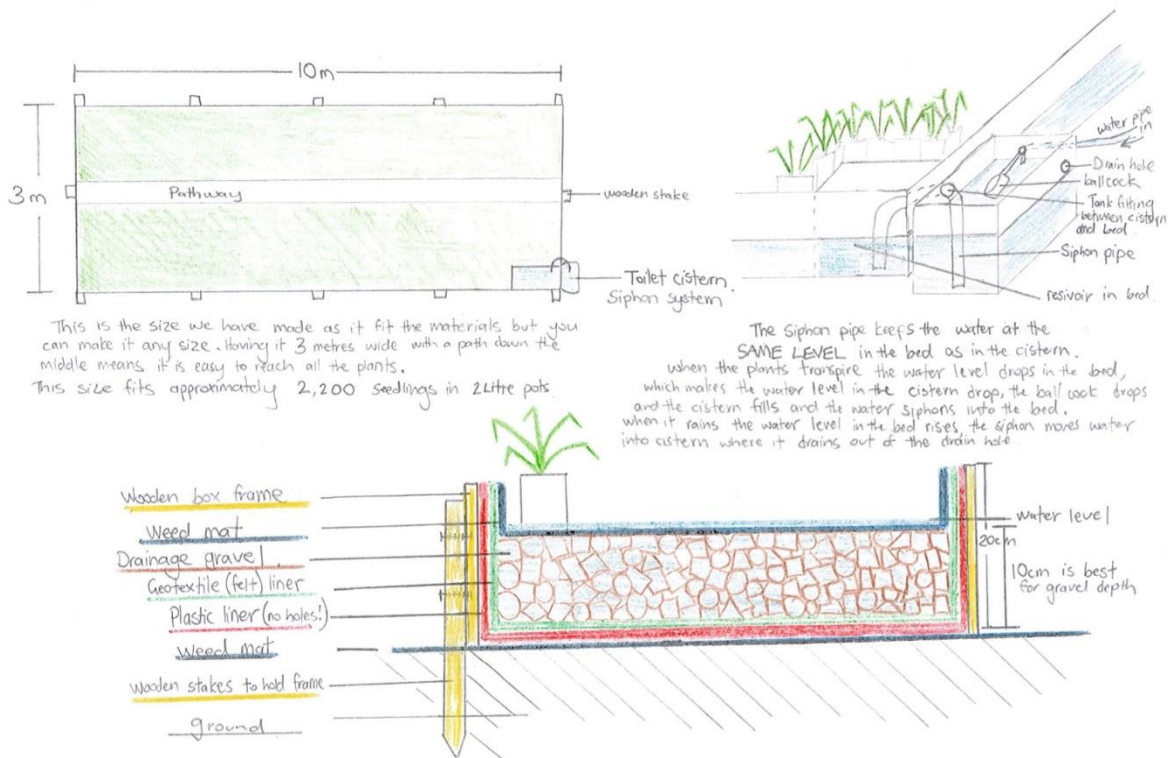 10m
3m
Pathway
wooden stake
Toilet cistern
Siphon system
This is the size we have made as it fit the materials but you
can make it any size. Having it 3 metres wide with a path down the
middle means it is easy to reach all the plants.
This size fits approximately 2,200 seedlings in 2Litre pots
water pipe
in
Drain hole
ballcock
Tank fitting
between cistern
and bed
Siphon pipe
resivoir in bed.
The siphon pipe keeps the water at the
SAME LEVEL in the bed as in the cistern.
when the plants transpire the water level drops in the bed,
which makes the water level in the cistern drop, the ball cock drops
and the cistern fills and the water siphons into the bed.
when it rains the water level in the bed rises, the siphon moves water
into cistern where it drains out of the drain hole.
Wooden box frame
Weed mat
Drainage gravel
Geotextile (felt) liner
Plastic liner (no holes!)
Weed mat
Wooden stakes to hold frame
ground
water level
20cm
10cm is best
for gravel depth